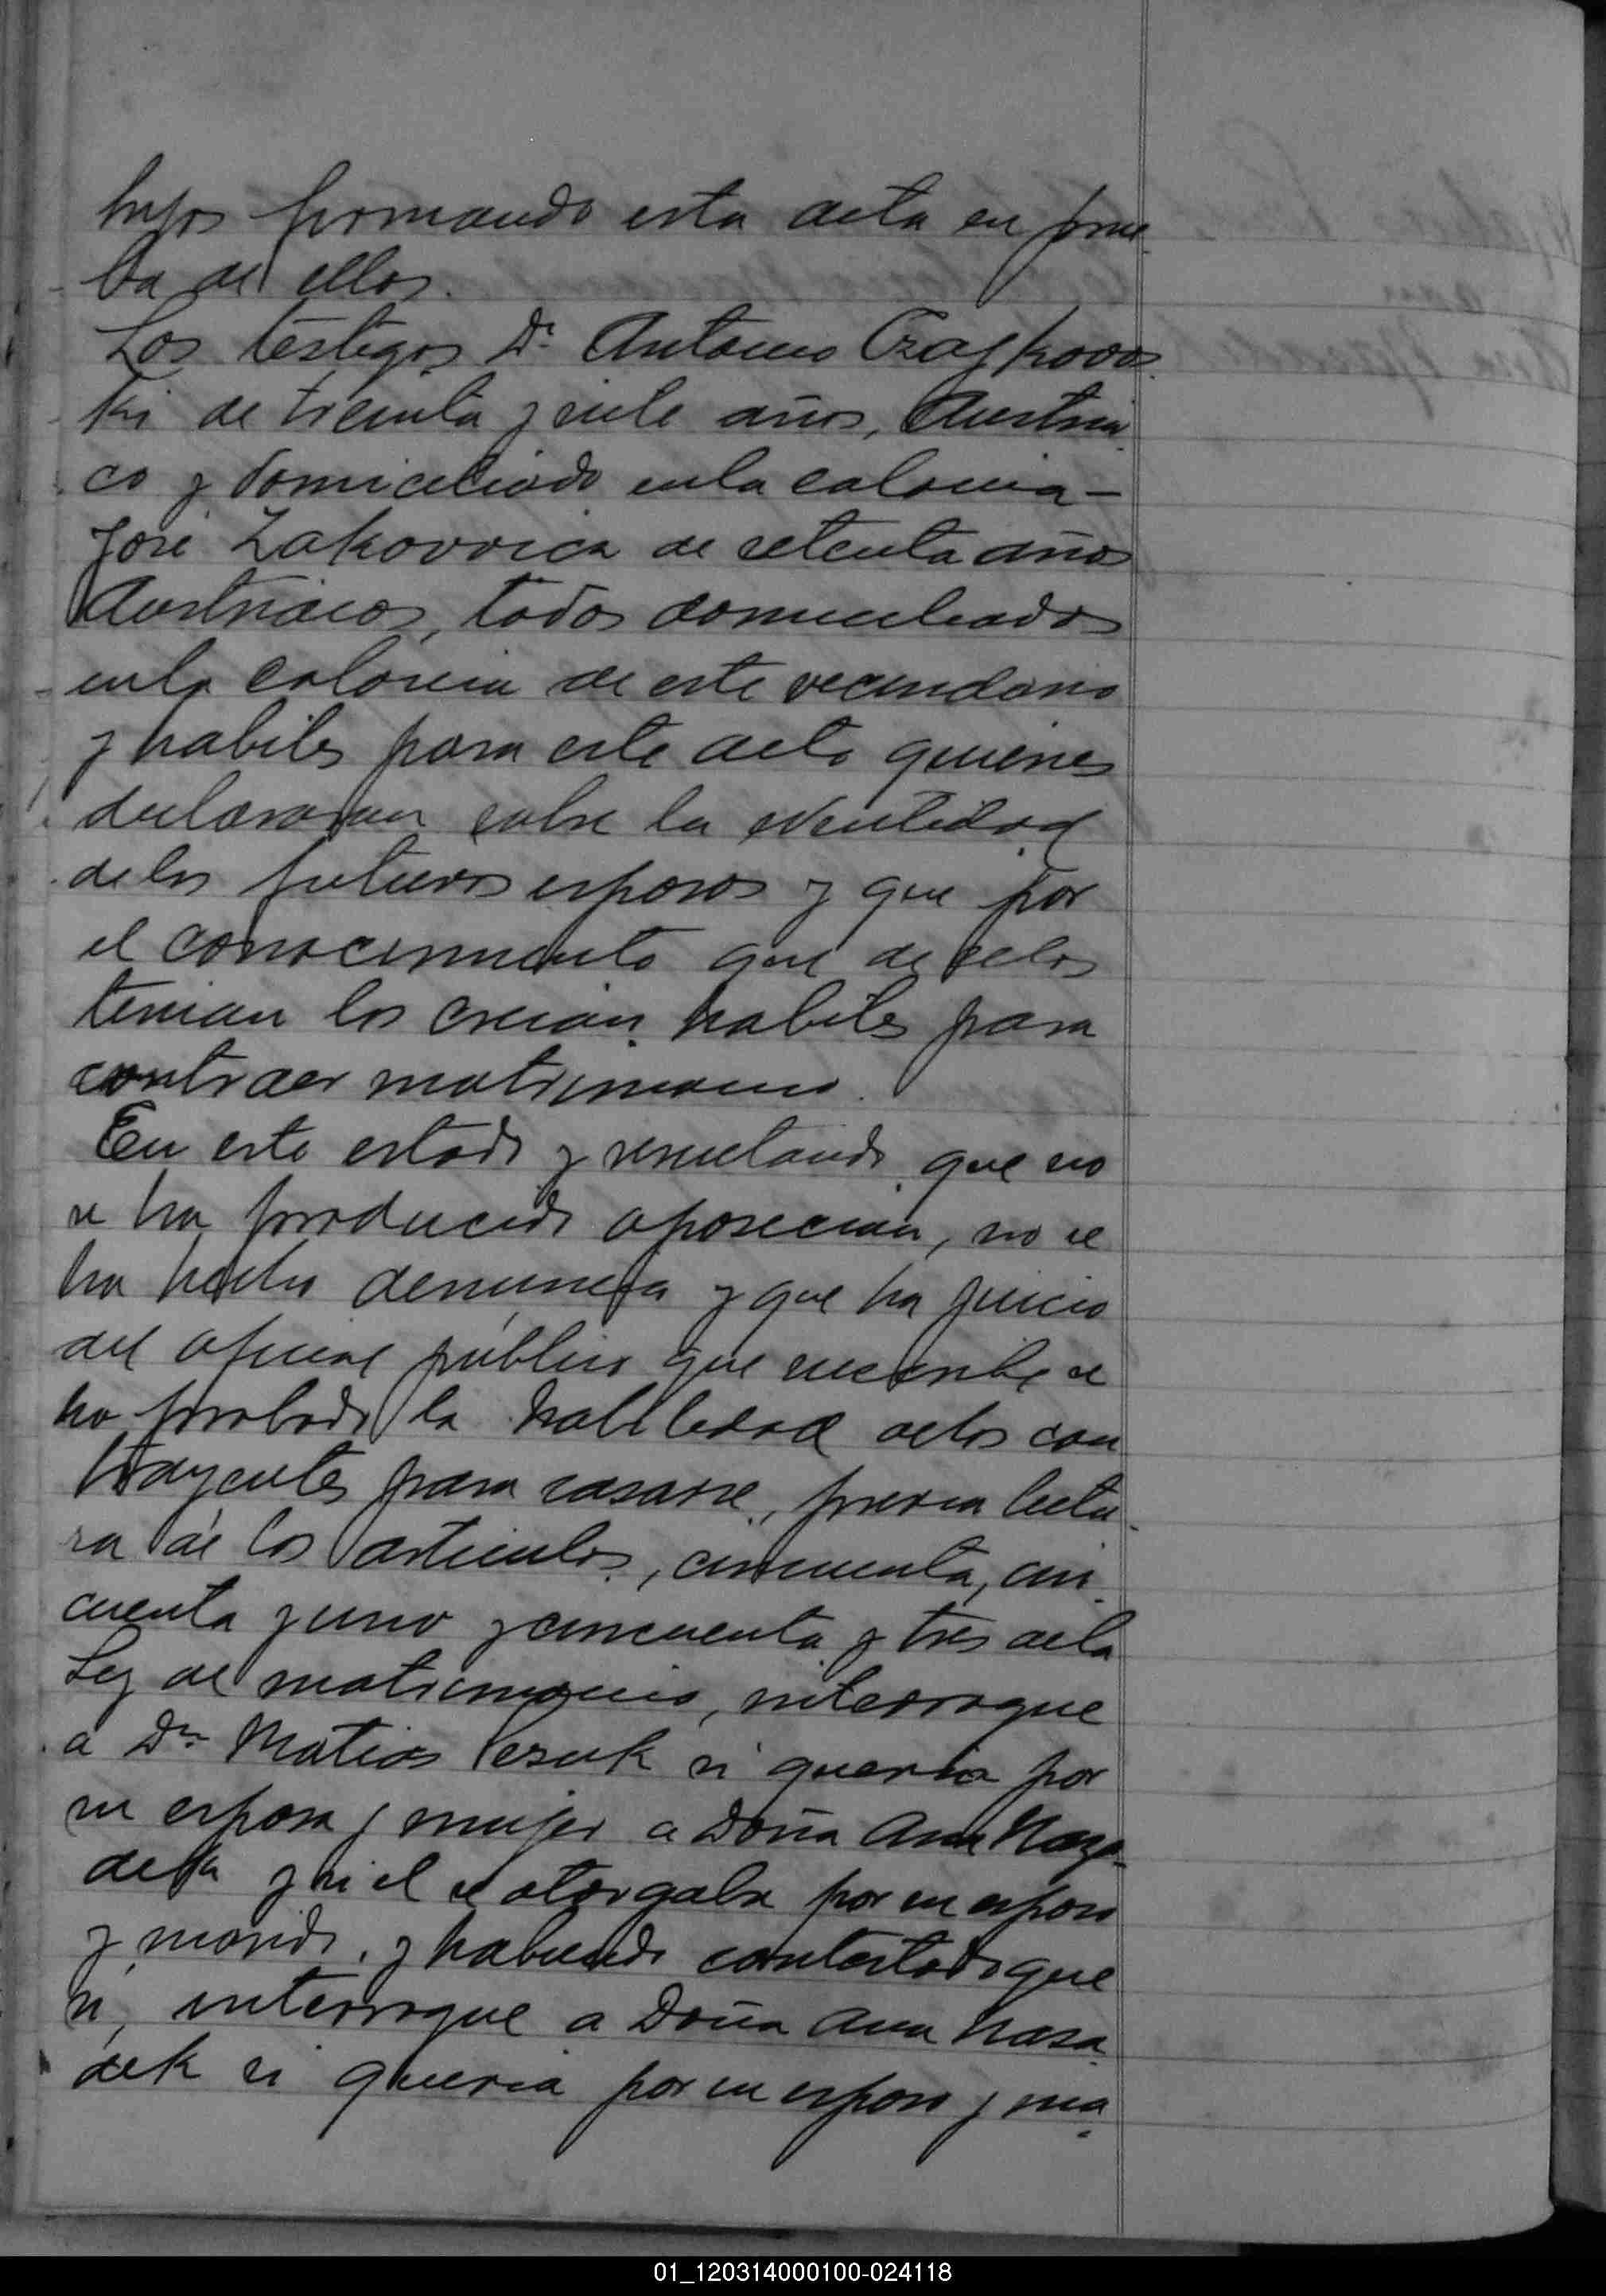 hijos firmando esta acta en prue
ba de ellos.
Los testigos Dn Antonio Czajkows
ki de treinta y siete años, Austria
co y domiciliado en la colonia -
José Zakovvica de setenta años
Austriacos, todos domiciliados
en la colonia de este vecindario
y habiles para este acto quienes
declararon sobre la identidad
de los futuros esposos y que por
el conocimiento que de ellos
tenian los creian habiles para
contraer matrimonio.
En este estado y resultando que no
se ha producido oposicion, no se
ha hecho denuncia y que ha juicio
del oficial público que suscribe se
ha probado la habilidad de los con
trayentes para casarse, previa lectu
ra de los articulos, cincuenta, cin
cuenta y uno y cincuenta y tres de la
Ley de matrimonio, interrogue
a Dn Matias si queria por
su esposa y mujer a Doña Ana Naza
dek y si el se otorgaba por su esposo
y marido, y habiendo contestado que
si, interrogue a Doña Ana Nasa
dek si queria por su esposo y ma
01_120314000100-024118